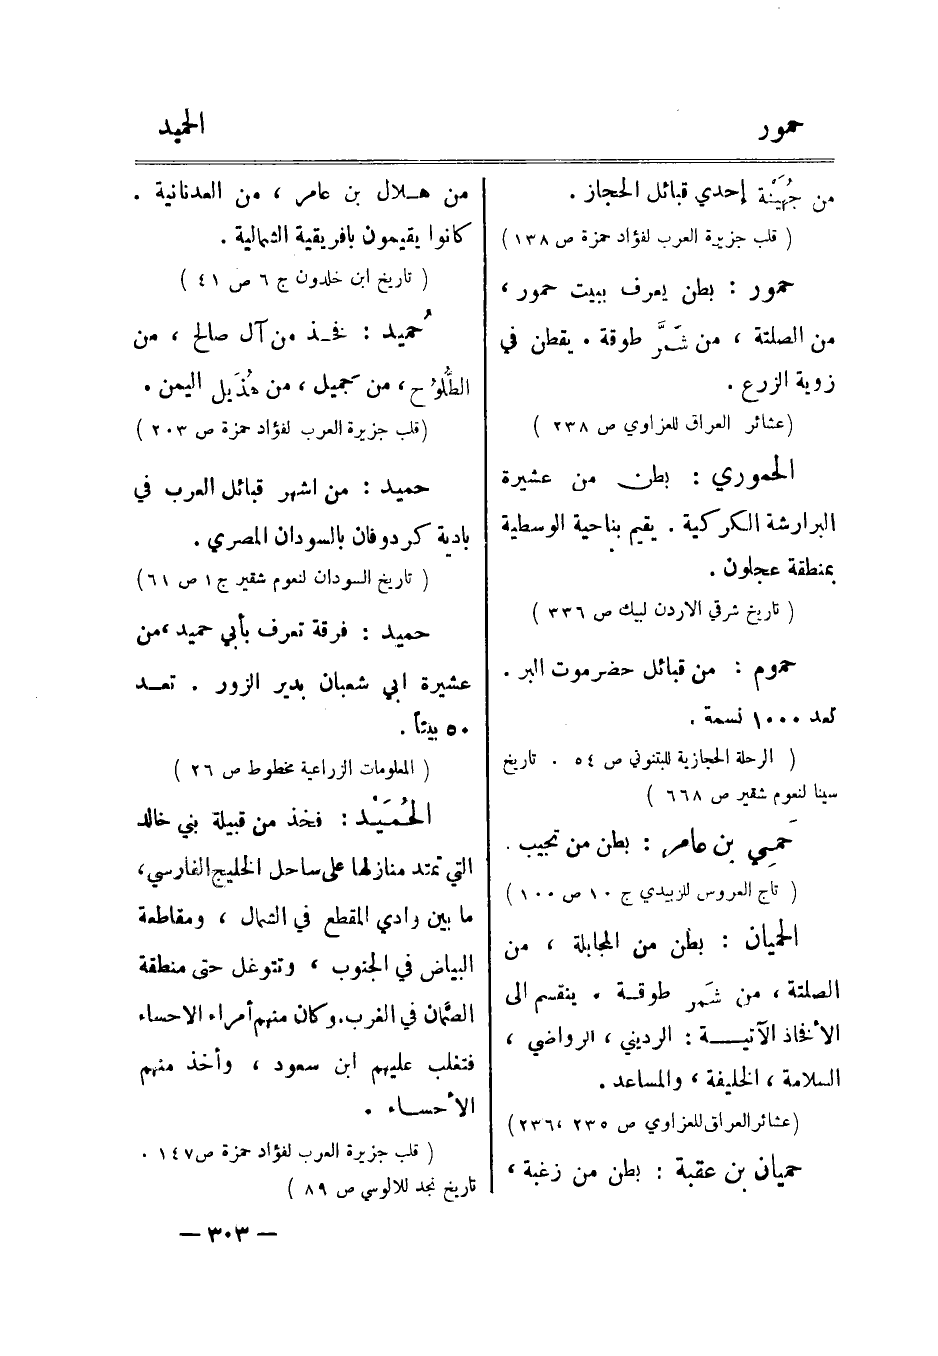 حمور
الحميد
من جُهَيْنة إحدي قبائل الحجاز .
( قلب جزيرة العرب لفؤاد حمزة ص ١٣٨ )
حمور : بطن يعرف ببيت حمور ،
من الصلتة ، من شَمَّر طوقة . يقطن في
زوية الزرع .
(عشائر العراق للعزاوي ص ٢٣٨ )
الحموري : بطن من عشيرة
البرارشة الكركية . يقيم بناحية الوسطية
بمنطقة عجلون .
( تاريخ شرقي الاردن لبيك ص ٣٣٦ )
حموم : من قبائل حضرموت البر .
تعد ١٠٠٠ نسمة .
( الرحلة الحجازية للبتنوني ص ٥٤ . تاريخ
سينا لنعوم شقير ص ٦٦٨ )
حَمِي بن عامر : بطن من تجيب .
( تاج العروس للزبيدي ج ١٠ ص ١٠٠ )
الحميان : بطن من المجابلة ، من
الصلتة ، من شَمَر طوقة . ينقسم الى
الأفخاذ الآتية : الرديني ، الرواضي ،
السلامة ، الخليفة ، والمساعد .
(عشائر العراق للعزاوي ص ٢٣٥ ،٢٣٦)
حميان بن عقبة : بطن من زغبة ،
من هلال بن عامر ، من العدنانية .
كانوا يقيمون بافريقية الشمالية .
( تاريخ ابن خلدون ج ٦ ص ٤١ )
حُميد : فخذ من آل صالح ، من
الطُّلوُح ، من جميل ، من هُذَيل اليمن .
(قلب جزيرة العرب لفؤاد حمزة ص ٢٠٣ )
حميد : من اشهر قبائل العرب في
بادية كردوفان بالسودان المصري .
( تاريخ السودان لنعوم شقير ج ١ ص ٦١)
حميد : فرقة تعرف بأبي حميد ،من
عشيرة ابي شعبان بدير الزور . تعد
٥٠ بيتاً .
( المعلومات الزراعية مخطوط ص ٢٦ )
الحُمَيْد : فخذ من قبيلة بني خالد
التي تمتد منازلها على ساحل الخليج الفارسي ،
ما بين وادي المقطع في الشمال ، ومقاطعة
البياض في الجنوب ، وتتوغل حتى منطقة
الصَّمان في الغرب.وكان منهم أمراء الاحساء
فتغلب عليهم ابن سعود ، وأخذ منهم
الأحساء .
( قلب جزيرة العرب لفؤاد حمزة ص١٤٧ .
تاريخ نجد للالوسي ص ٨٩ )
— ٣٠٣ —